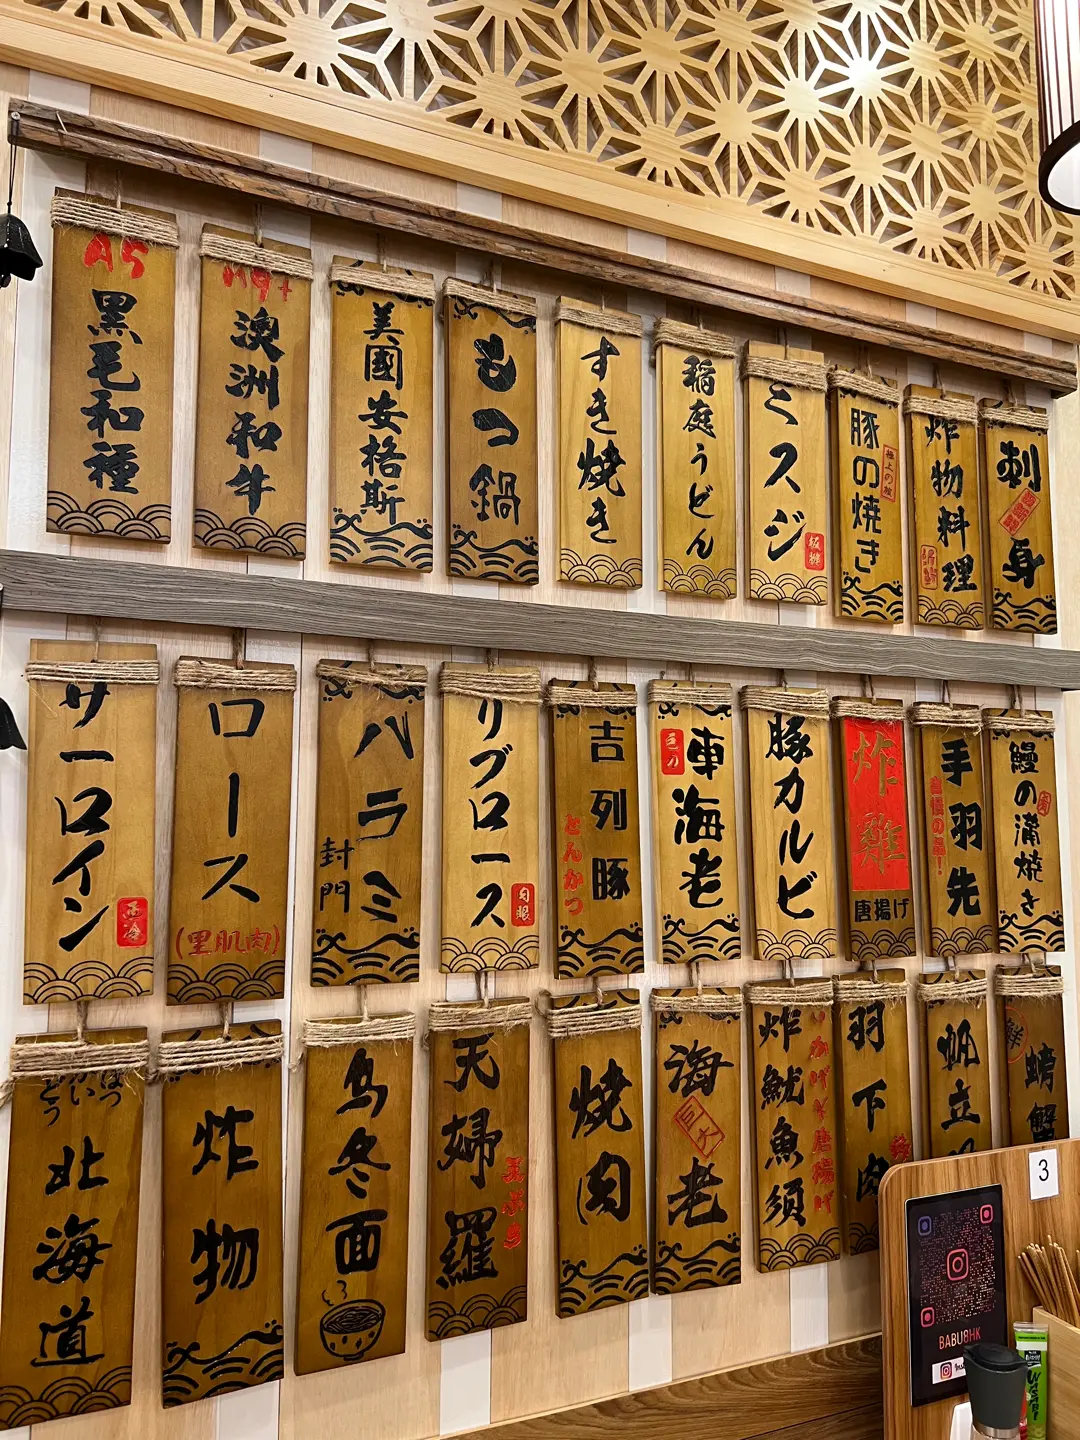 A5
黒毛和種
M9+
澳洲和牛
美國安格斯
もつ鍋
すき焼き
稲庭うどん
ミスジ
豚の焼き
極上の味
炸物料理
刺身
サーロイン
西冷
ロース
(里肌肉)
ハラミ
封門
リブロース
肉眼
吉列豚
とんかつ
車海老
豚カルビ
炸雞
唐揚げ
手羽先
鰻の蒲焼き
ほっかいどう
北海道
炸物
烏冬面
天婦羅
天ぷら
焼肉
海老
巨大
炸魷魚須
いかげそ唐揚げ
羽下肉
帆立
鮮
螃蟹
3
BABU8HK